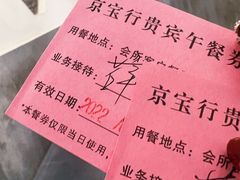 京宝行贵宾午餐券
用餐地点：会所
业务接待：
有效日期：2022.
*本餐券仅限当日使用，
京宝行贵
用餐地点：会
业务接待：
有效日期
*本餐券仅限